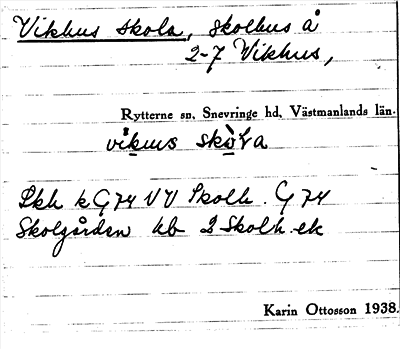 Vikhus skola, skolhus å
2-7 Vikhus,
Rytterne sn, Snevringe hd, Västmanlands län.
Skh k G 74 VV Skolh. G 74
Skolgården hb 2 Skolh. ek
Karin Ottosson 1938.